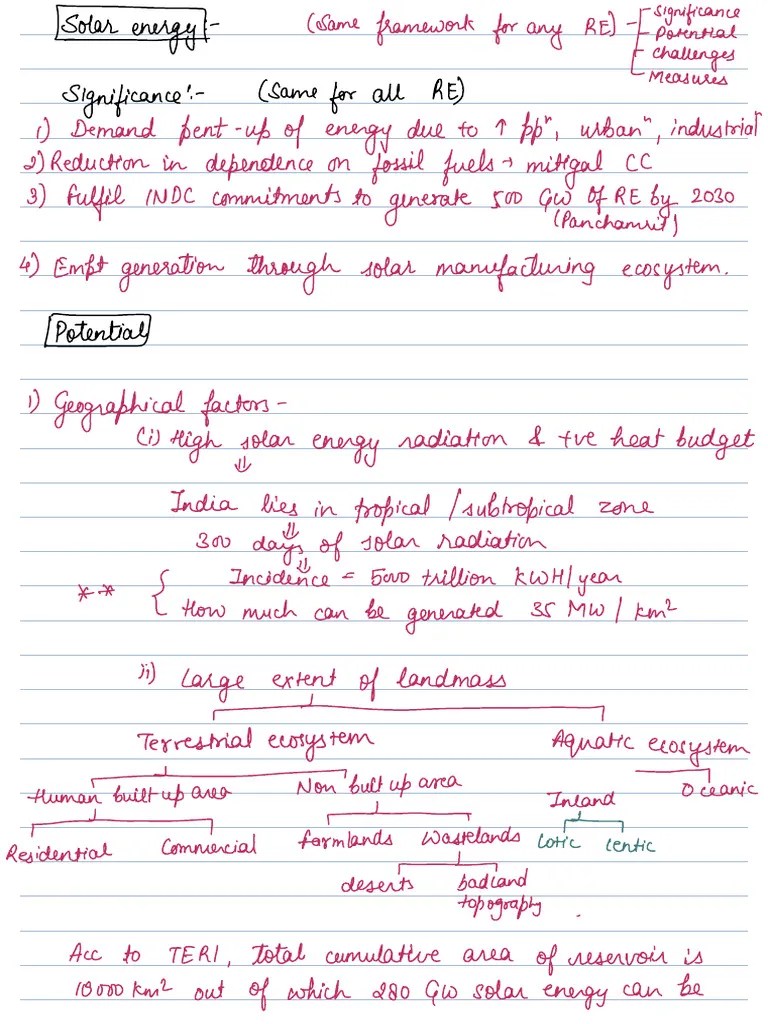 Solar energy :- (Same framework for any RE) - Significance
Potential
Challenges
Measures
Significance :- (Same for all RE)
1) Demand pent-up of energy due to ↑ ppⁿ, urbanⁿ, industrial
2) Reduction in dependence on fossil fuels → mitigal CC
3) Fulfil INDC commitments to generate 500 GW of RE by 2030
(Panchamrit)
4) Empt generation through solar manufacturing ecosystem.
Potential
1) Geographical factors -
(i) High solar energy radiation & +ve heat budget
⇓
India lies in tropical / subtropical zone
⇓
300 days of solar radiation
⇓
** { Incidence = 5000 trillion KWH/year
How much can be generated 35 MW / km²
ii) Large extent of landmass
Terrestrial ecosystem Aquatic ecosystem
Human built up area Non built up area Inland Oceanic
Residential Commercial farmlands Wastelands Lotic Lentic
deserts badland
topography
Acc to TERI, total cumulative area of reservoir is
18000 km² out of which 280 GW solar energy can be